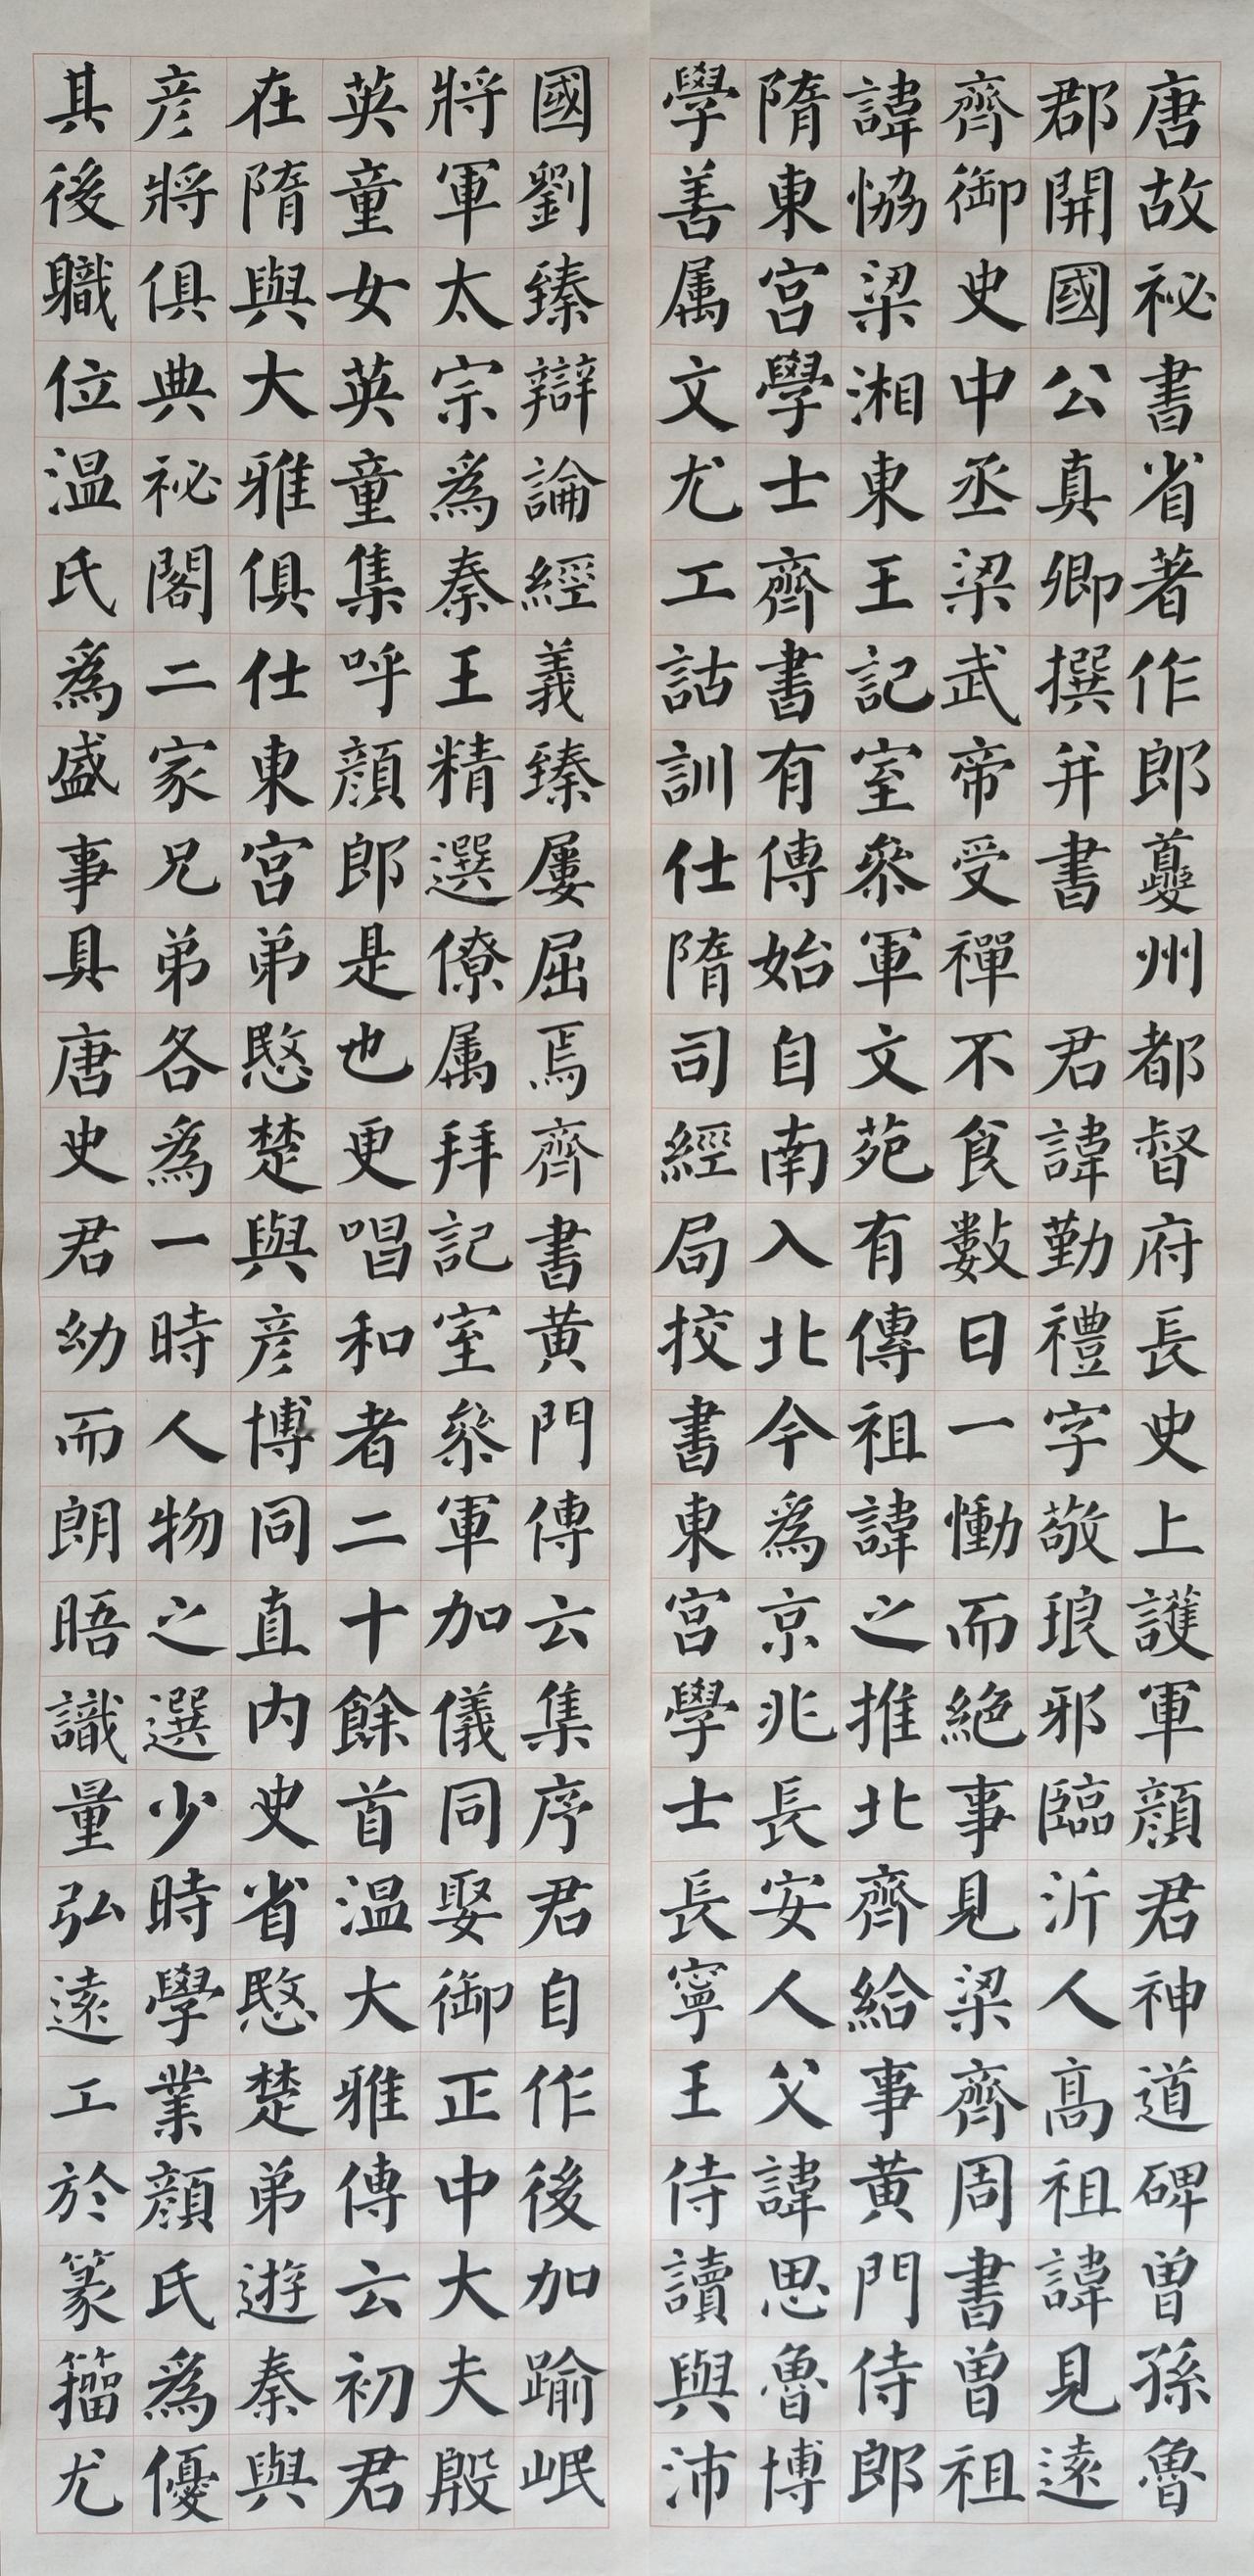 唐故祕書省著作郎夔州都督府長史上護軍顔君神道碑曾孫魯
郡開國公真卿撰并書 君諱勤禮字敬琅邪臨沂人高祖諱見遠
齊御史中丞梁武帝受禪不食數日一慟而絶事見梁齊周書曾祖
諱恊梁湘東王記室叅軍文苑有傳祖諱之推北齊給事黄門侍郎
隋東宫學士齊書有傳始自南入北今爲京兆長安人父諱思魯博
學善属文尤工詁訓仕隋司經局挍書東宫學士長寧王侍讀與沛
國劉臻辯論經義臻屢屈焉齊書黄門傳云集序君自作後加踰岷
將軍太宗爲秦王精選僚属拜記室叅軍加儀同娶御正中大夫殷
英童女英童集呼顔郎是也更唱和者二十餘首温大雅傳云初君
在隋與大雅俱仕東宫弟愍楚與彦博同直内史省愍楚弟遊秦與
彦將俱典祕閣二家兄弟各爲一時人物之選少時學業顔氏爲優
其後職位温氏爲盛事具唐史君幼而朗晤識量弘遠工於篆籀尤